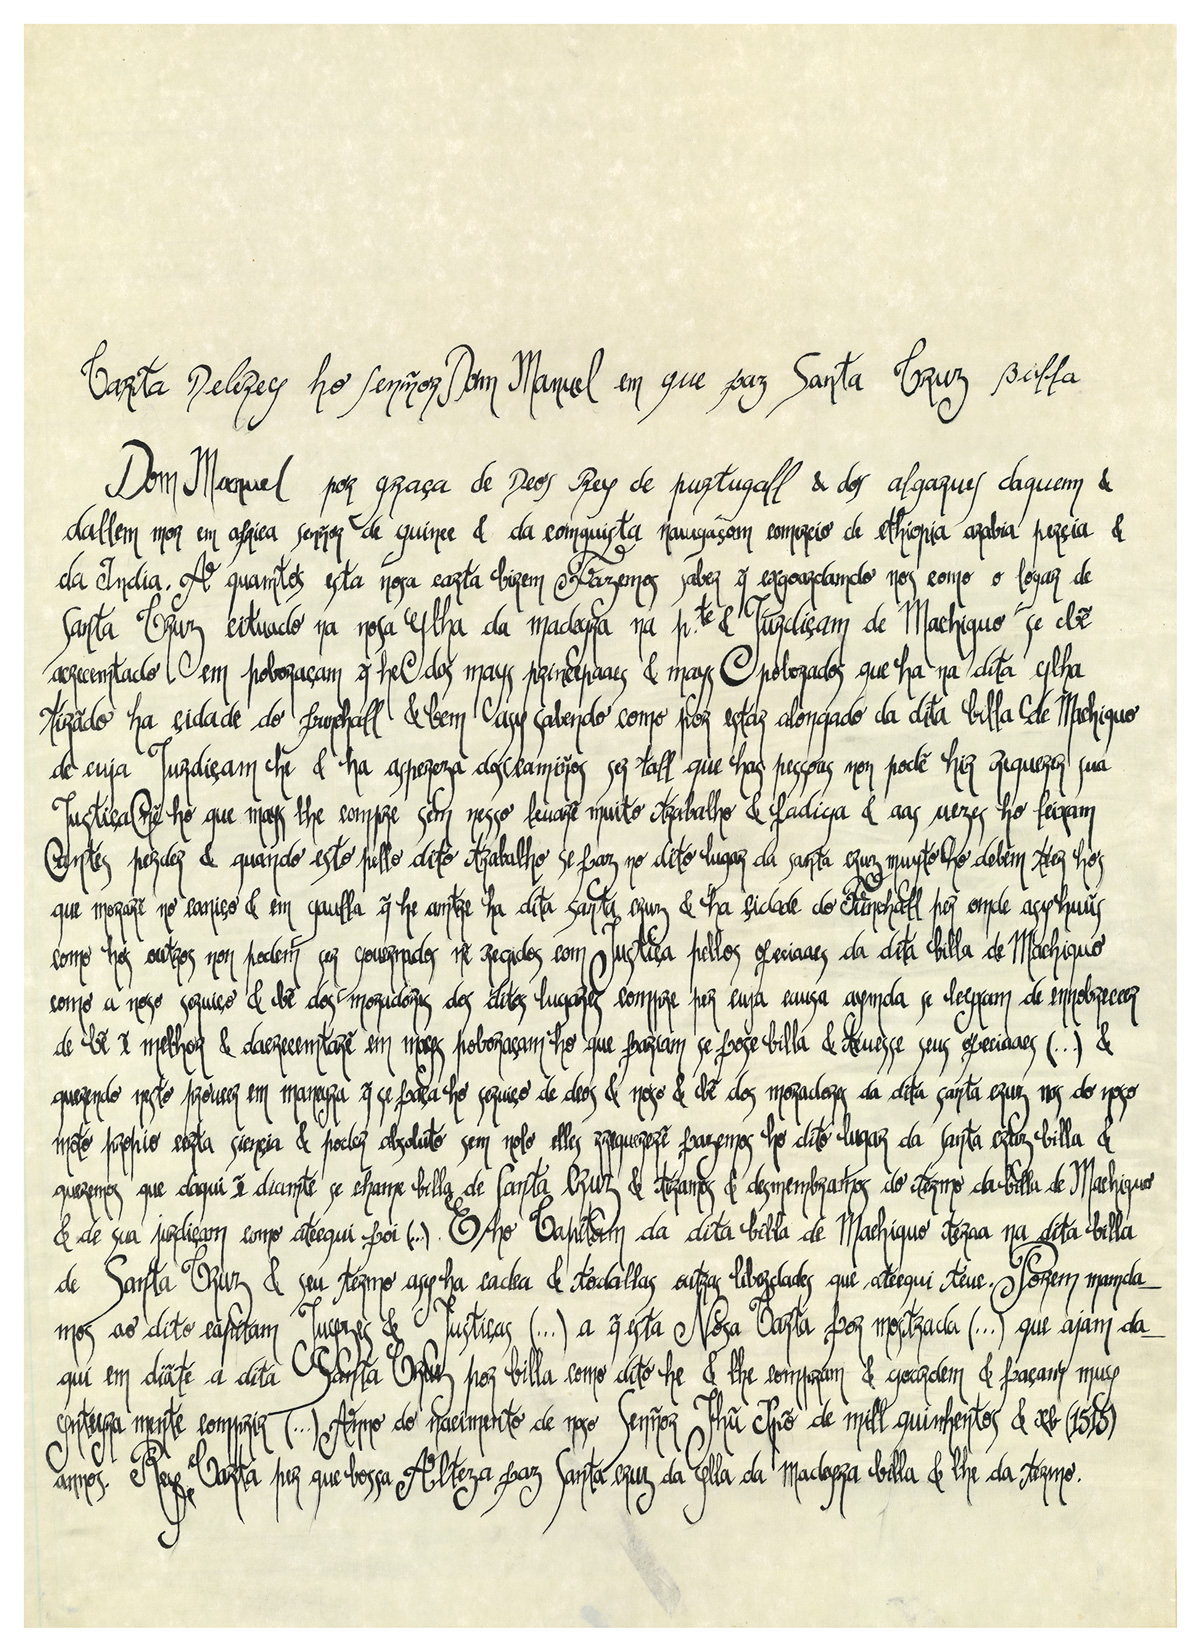 Carta Delrrey ho senñor Dom Manuel em que faz Santa Cruz Billa
Dom Manuel por graça de Deos Rey de purtugall & dos algarues daquem &
dallem mor em africa senñor de guinee & da comquista nauegaçom comercio de ethiopia arabia perçia &
da India. A quamtos esta nosa carta birem Fazemos saber q̃ esgoardamdo nos como o logar de
Santa Cruz cituado na nosa ylha da madeyra na p.te & Jurdiçam de Machiquo se
acrecemtado em poboraçam q̃ he dos mays primcepaaes & mays poborados que ha na dita ylha
tirãdo ha cidade do funchall & bem asy sabendo como por estar alongado da dita billa de Machiquo
de cuja Jurdiçam he & ha aspereza dos camiños ser tall que has pessoas non podẽ hir requerer sua
Justiça nẽ ho que mays lhe compre sem nesso leuarẽ muito trabalho & fadiga & aas uezes ho leixam
antes perder & quando esto pello dito trabalho se faz no dito lugar da santa cruz muyto ho debem ter hos
que morarẽ no caniço & em gaulla q̃ he amtre ha dita santa cruz & ha cidade do Funchall per omde asy huũs
como hos outros non podem ser gouernados nẽ regidos com Justiça pellos ofeciaaes da dita billa de Machiquo
como a noso seruiço & bẽ dos moradores dos ditos lugares compre per cuja causa aymda se leyxam de ennobrecer
de bẽ ẽ melhor & dacrecemtarẽ em mays poboraçam ho que fariam se fose billa & teuesse seus ofeciaaes (...) &
querendo nesto proueer em maneyra q̃ se faça ho seruiço de deos & noso & bẽ dos moradores da dita santa cruz nos do noso
moto propio certa siencia & poder absoluto sem nolo elles rrequererẽ fazemos ho dito lugar da santa cruz billa &
queremos que daqui ẽ diamte se chame billa de Santa Cruz & tiramos & desmembramos do termo da billa de Machiquo
& de sua jurdiçam como ateequi foi (...). E ho Capitam da dita billa de Machiquo teraa na dita billa
de Santa Cruz & seu termo asy ha cadea & todallas outras liberdades que ateequi teue. Porem mamda_
mos ao dito capitam Juizes & Justiças (...) a q̃ esta Nosa Carta for mostrada (...) que ajam da_
qui em diãte a dita Santa Cruz por billa como dito he & lhe compram & goardem & façam muy
ynteyra mente comprir (...) Anno do nacimento de noso Senñor Jhũ Xpõ de mill quinhentos & xb (1515)
annos. Rey. Carta per que bossa Alteza faz Santa cruz da ylla da Madeyra billa & lhe da termo.